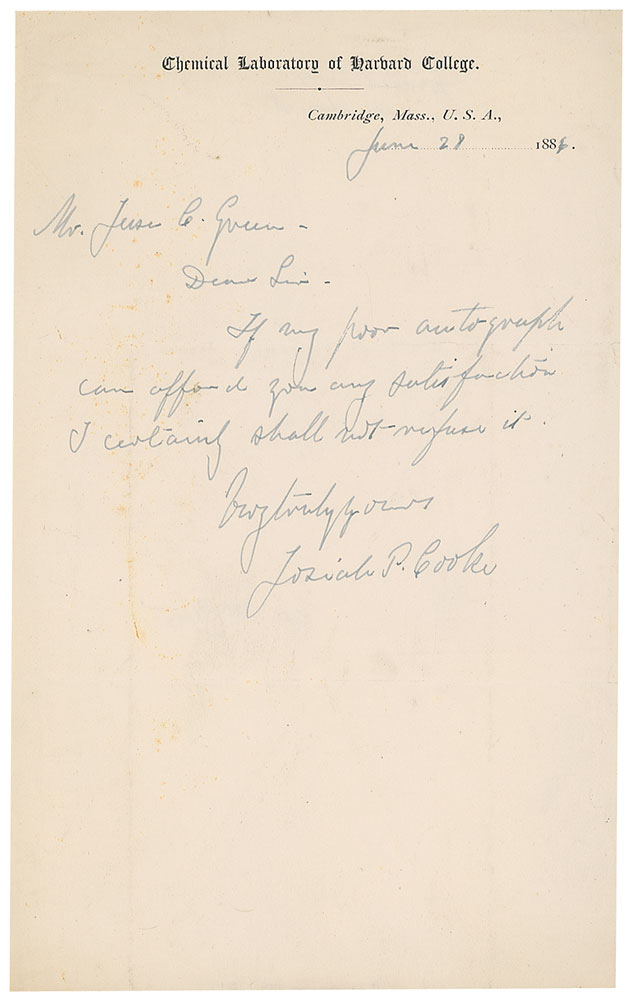 Chemical Laboratory of Harvard College.
Cambridge, Mass., U. S. A.,
June 28 1886.
Mr. Jesse C. Green -
Dear Sir -
If my poor autograph
can afford you any satisfaction
I certainly shall not refuse it.
Very truly yours
Josiah P. Cooke